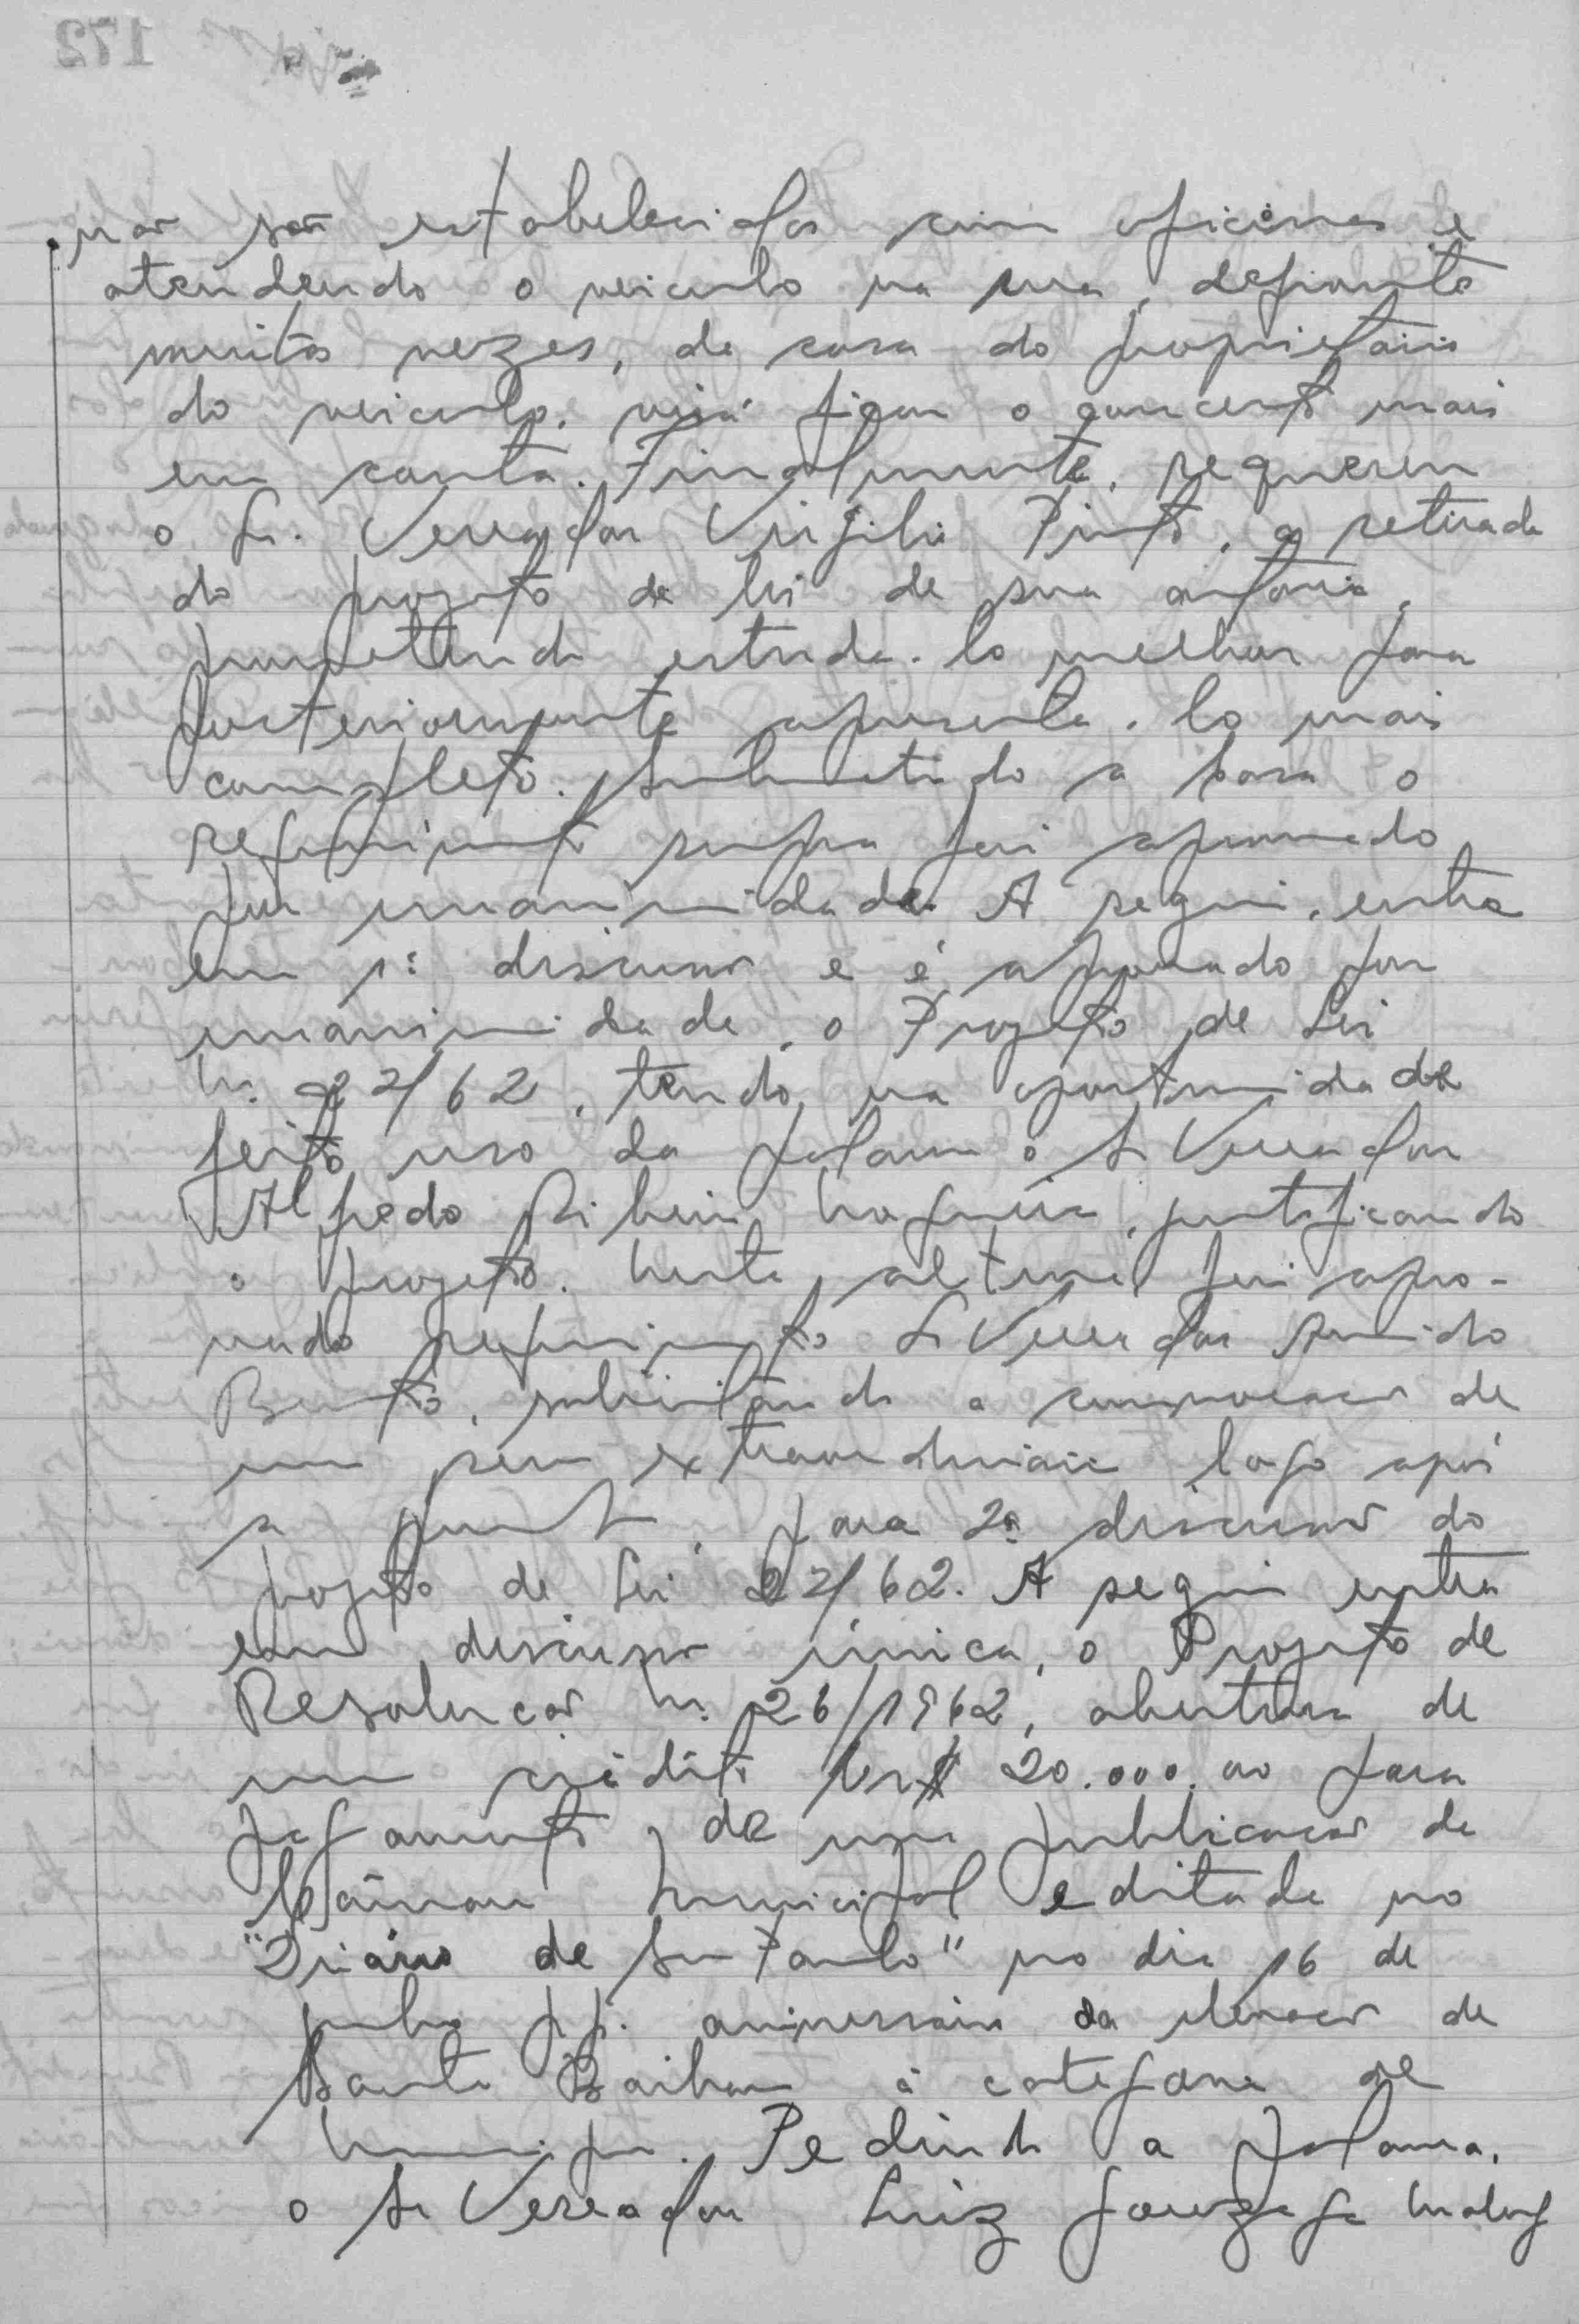 nao são estabelecidos com oficinas e
atendendo o veiculo na rua, defronte
muitas vezes, da casa do proprietario
do veiculo, virá ficar o concerto mais
em conta. Finalmente, requereu
o Sr. Vereador Virgilio Pinto, a retirada
do projeto de lei de sua autoria,
prometendo estuda-lo melhor para
posteriormente apresenta-lo mais
completo. Submetido a Casa o
requerimento supra foi aprovado
por unanimidade. A seguir, entra
em 1ª discussao e é aprovado por
unanimidade, o Projeto de Lei
Nº 22/62, tendo, na oportunidade
feito uso da palavra o Sr Vereador
Alfredo Ribeiro Nogueira, justificando
o projeto. Nesta altura foi apro-
vado requerimento Sr Vereador
Bento, solicitando a convocacao de
uma sessao extraordinaria logo após
a presente, para 2ª discussao do
projeto de Lei 22/62. A seguir entra
em discussao única, o Projeto de
Resolucao Nº 26/1962, abertura de
um crédito Cr$ 20.000,00 para
pagamento de uma publicacao da
Câmara Municipal editada no
"Diário de Sao Paulo" no dia 16 de
junho p.p. aniversario da elevacao de
Santa Barbara à categoria de
Municipio. Pedindo a palavra,
o Sr Vereador Luiz Gonzaga